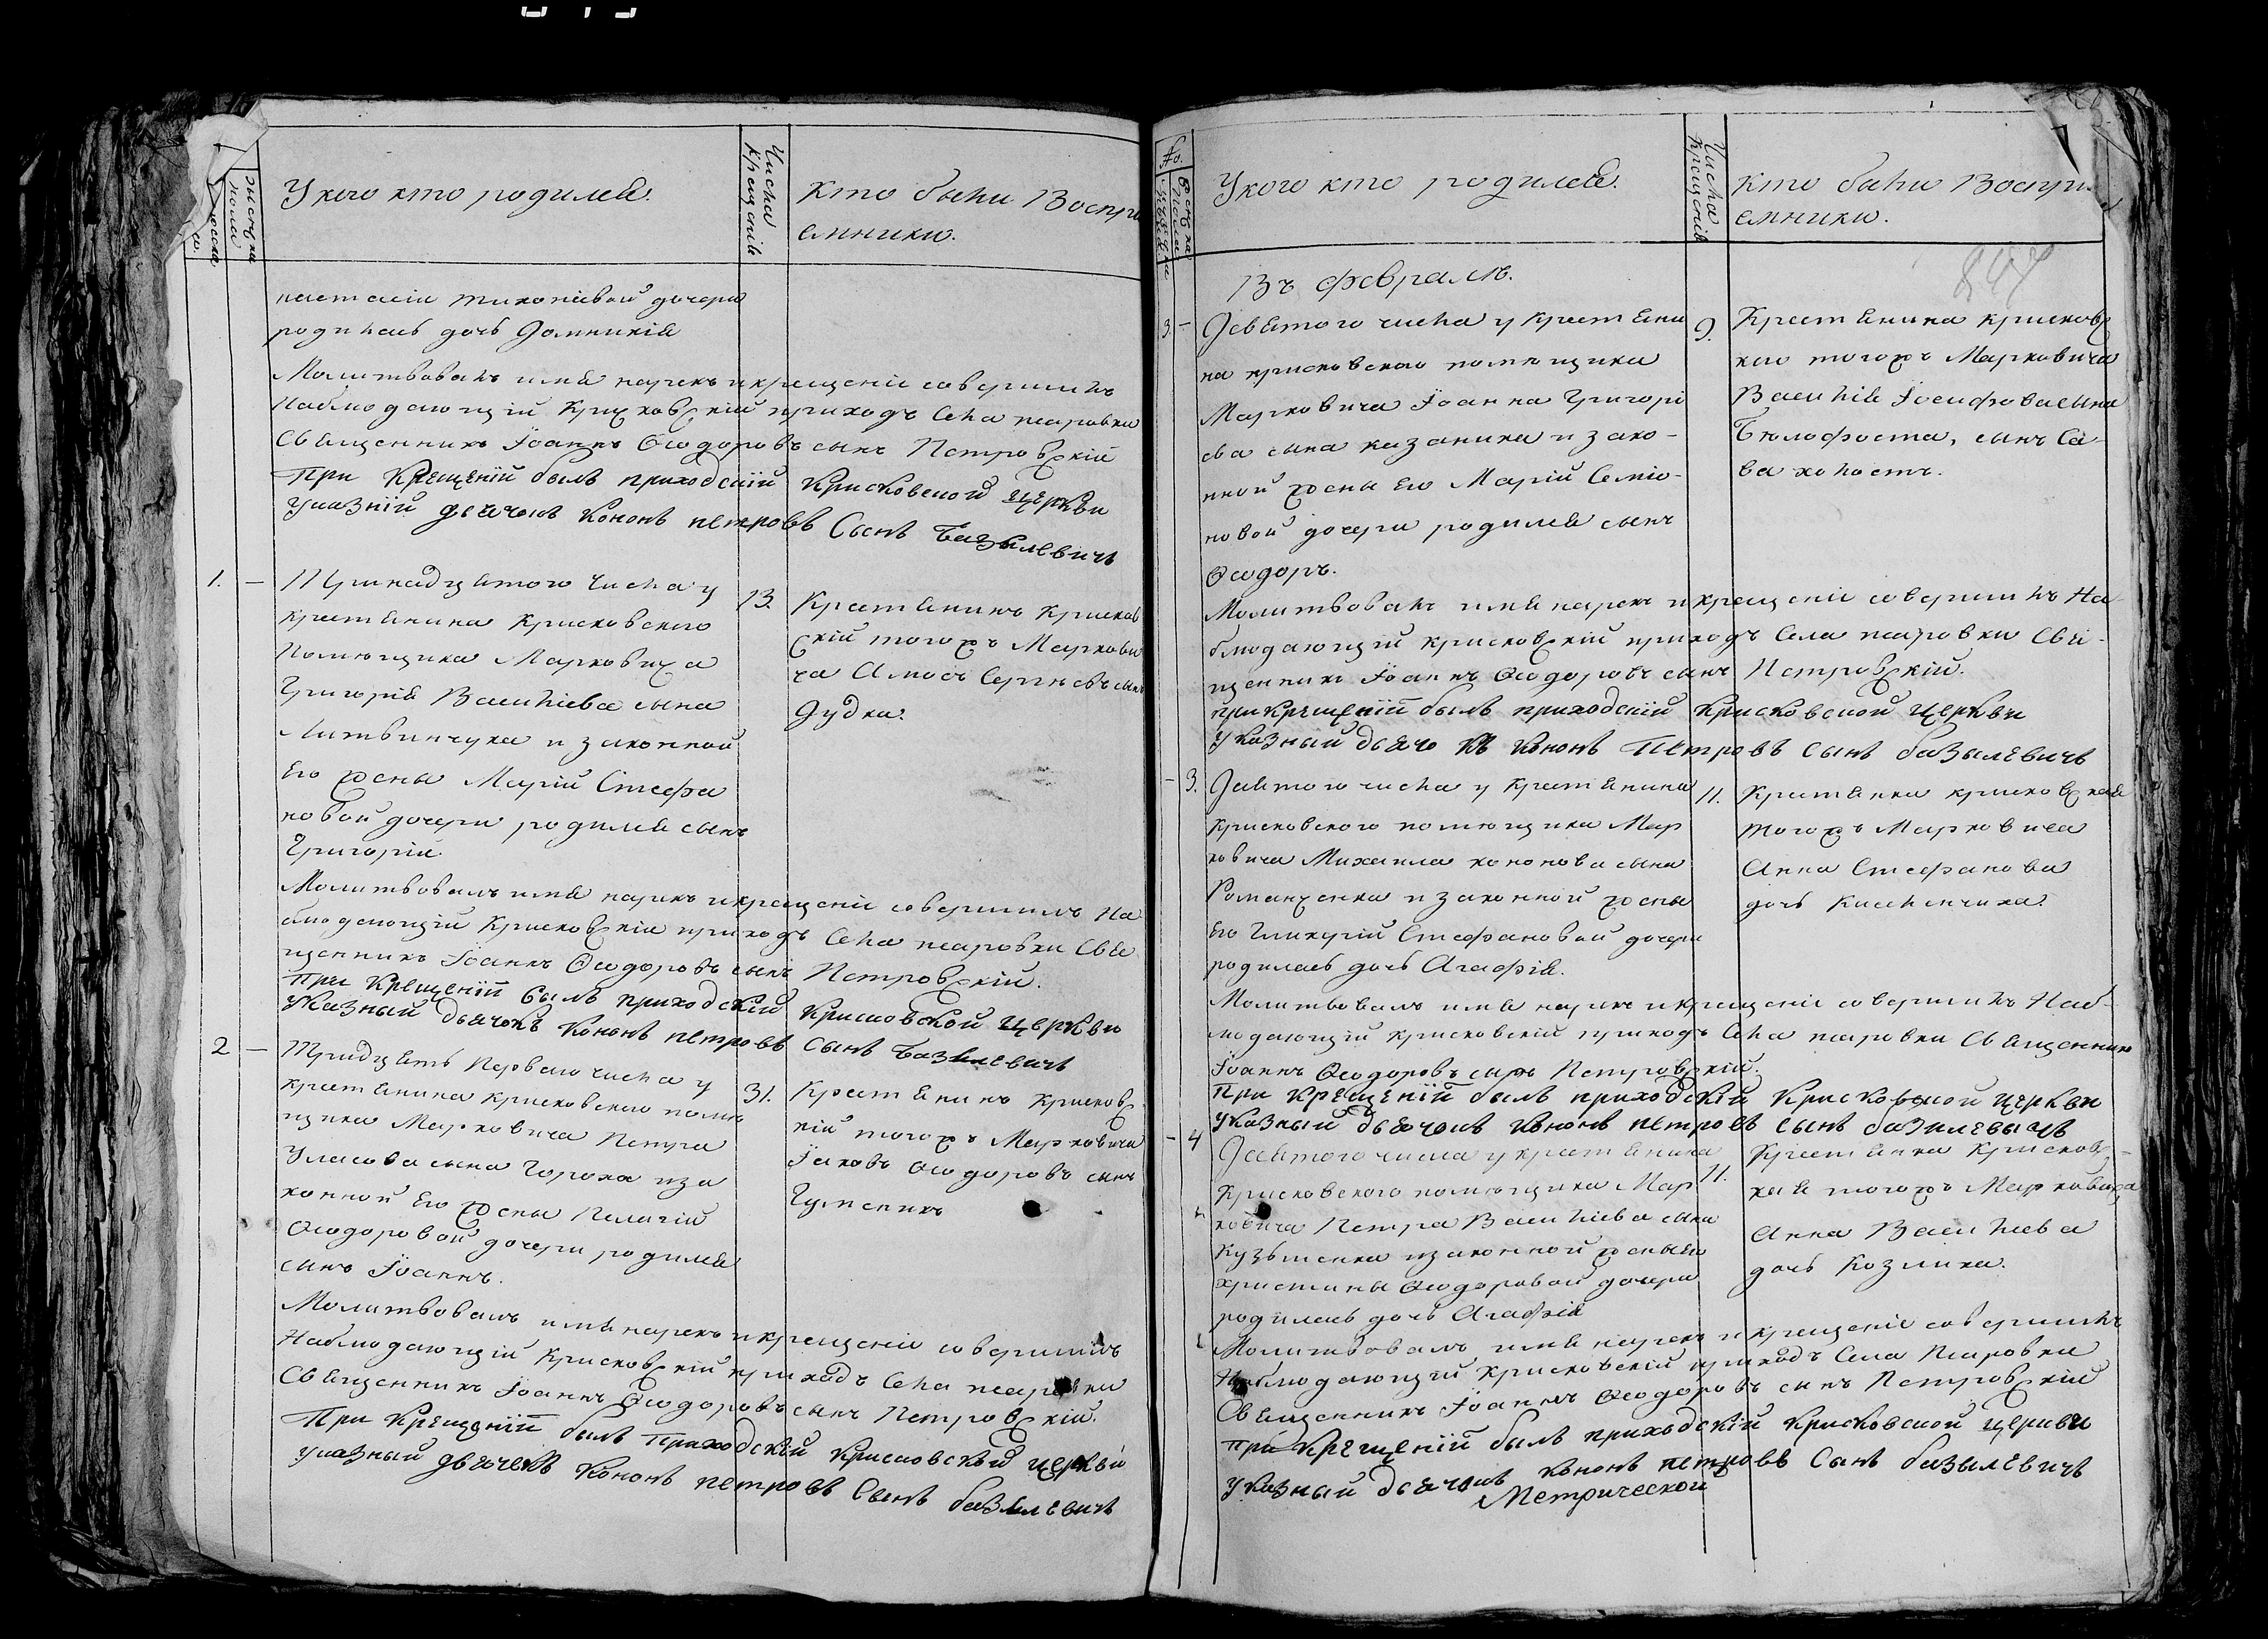 У кого кто родился.
Числа Крещенія
Кто были Воспри
емники.
настасіи тихоніевой дочери
родилась дочь Домникія
Молитвовалъ имя нарекъ и крещеніе совершилъ
Наблюдающій Крисковскій приходъ Села псаровки
Священникъ Іоаннъ Ѳеодоровъ сынъ Петровскій
При Крещеніи былъ приходскій Крисковской церкви
указній дьячокъ Кононъ петровъ Сынъ Базылевичъ
1. —
Тринадцятого числа у
крестянина Крисковского
Помещика Марковича
Григорія Василіева сына
Литвинчука и законной
Его жены Маріи Стефа
новой дочери родился сынъ
Григорій
13.
Крестянинъ Крисков
скій тогожъ Маркови
ча Амосъ Сергеевъ сынъ
Дудка.
Молитвовалъ имя нарекъ и крещеніе совершилъ На
блюдающій Крисковскій приходъ Села псаровки Свя
щенникъ Іоаннъ Ѳеодоровъ сынъ Петровскій.
При Крещеніи былъ приходскій Крисковской церкви
Указный дьячокъ Кононъ петровъ Сынъ Базилевичъ
2 —
Тридцять Первого числа у
крестянина крисковского поме
щика Марковича Петра
Уласова сына Гороха и за
конной Его жены Пелагіи
Ѳеодоровой дочери родился
сынъ Іоаннъ.
31.
Крестянинъ Крисковс
кій тогожъ Марковича
Іаковъ Ѳеодоровъ сынъ
Гуменикъ
Молитвовалъ имя нарекъ и крещеніе совершилъ
Наблюдающій Крисковскій приходъ Села псаровки
Священникъ Іоаннъ Ѳеодоровъ сынъ Петровскій.
При Крещеніи былъ Приходскій Крисковской церкви
указный дьячокъ Кононъ петровъ Сынъ базилевичъ
№.
У кого кто родился.
Числа Крещенія
Кто были Воспри
емники.
Въ февралѣ.
3. —
Девятого числа у Крестяни
на крисковского помещика
Марковича Іоанна Григорі
ева сына казаника и зако-
нной жены Его Маріи Семіо-
новой дочери родился сынъ
Ѳеодоръ.
9.
Крестянина крисковс
кого тогожъ Марковича
Василія Іосифова сына
Белофоста, сынъ Са-
ва холостъ.
Молитвовалъ имя нарекъ и крещеніе совершилъ На
блюдающій крисковскій приходъ Села псаровки Свя-
щенникъ Іоаннъ Ѳеодоровъ сынъ Петровскій.
при крещеніи былъ приходскій Крисковской церкви
Указный дьячокъ Кононъ Петровъ Сынъ базылевичъ
— 3.
Девятого числа у Крестянина
Крисковского помещика Мар
ковича Михаила кононова сына
Романченка и законной жены
Его Гликерій Стефановой дочери
родилась дочь Агафія.
11.
Крестянка крисковская
тогожъ Марковича
Анна Стефанова
дочь
Молитвовалъ имя нарекъ и крещеніе совершилъ Наб-
людающій крисковскій приходъ Села псаровки Священникъ
Іоаннъ Ѳеодоровъ сынъ Петровскій.
При Крещеніи былъ приходскій Крисковской церкви
указный дьячокъ Кононъ петровъ сынъ базилевычъ
— 4
Девятого числа у крестянина
Крисковского помещика Мар
ковича Петра Василіева сына
Кузьменка и законной жены его
христины Ѳеодоровой дочери
родилась дочь Агафія
11.
Крестянка Крисковс-
кая тогожъ Марковича
Анна Василіева
дочь Козлика.
Молитвовалъ имя нарекъ и крещеніе совершилъ
Наблюдающій Крисковскій приходъ Села Псаровки
Священникъ Іоаннъ Ѳеодоровъ сынъ Петровскій
При Крещеніи былъ приходскій Крисковской церкви
Указный дьячокъ Кононъ петровъ Сынъ базылевичъ
Метрической